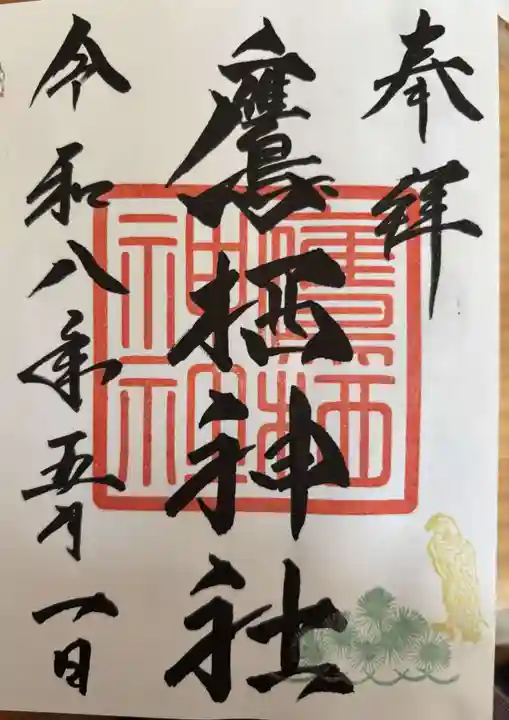 奉拝
鷹栖神社
令和八年五月一日
鷹栖
神社